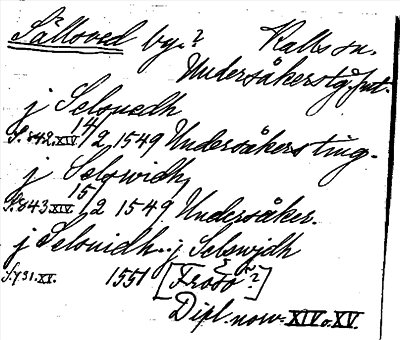 Sällsved by.? Kalls sn.
Undersåkers tg., Jmt.
j Selsuedh
S. 842. XIV. 14/2 1549 Undersåkers ting.
j Selswidh
S. 843. XIV. 15/2 1549. Undersåker.
j Selsuidh.. j Selswjdh
S. 731. XI. 1551 [Frösö?]
Dipl. norv. XIV o. XV.